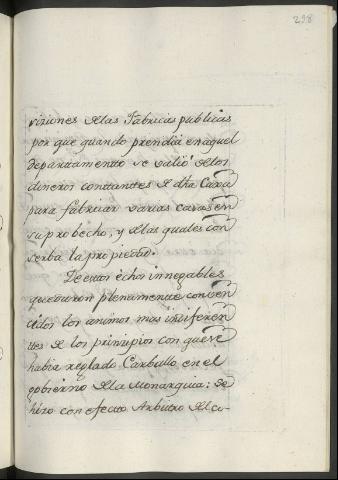 298
visiones de las Fabricas publicas
por que quando prendia en aquel
departamento se valió de los
dineros constantes de dha Caxa
para fabricar varias casas en
su probecho, y de las quales con
serba la propiedad.
De estos échos innegables
quedaron plenamente conven
cidos los animos mas indiferen
tes de los principios con que se
habia reglado Carbullo en el
gobierno de la Monarquia: se
hizo con efecto Arbitro del co-